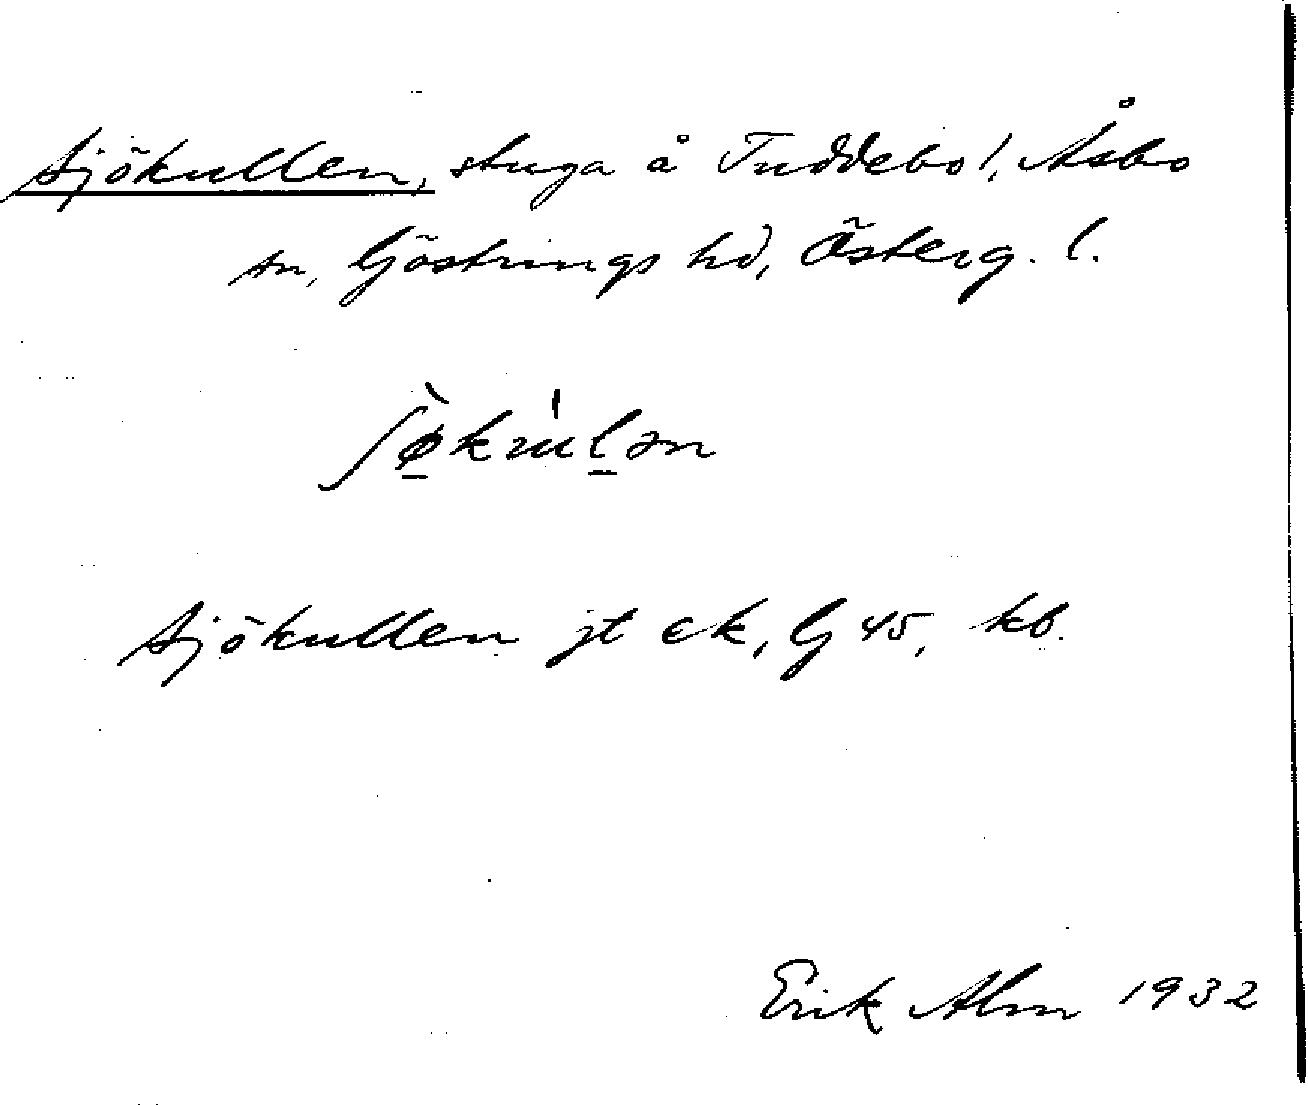 Sjökullen, stuga å Tuddebo!, Åsbo
sn, Göstrings hd, Österg. l.
ʃø̠̀kùl̠ən
Sjökullen jt ek, G 45, kb.
Erik Alm 1932